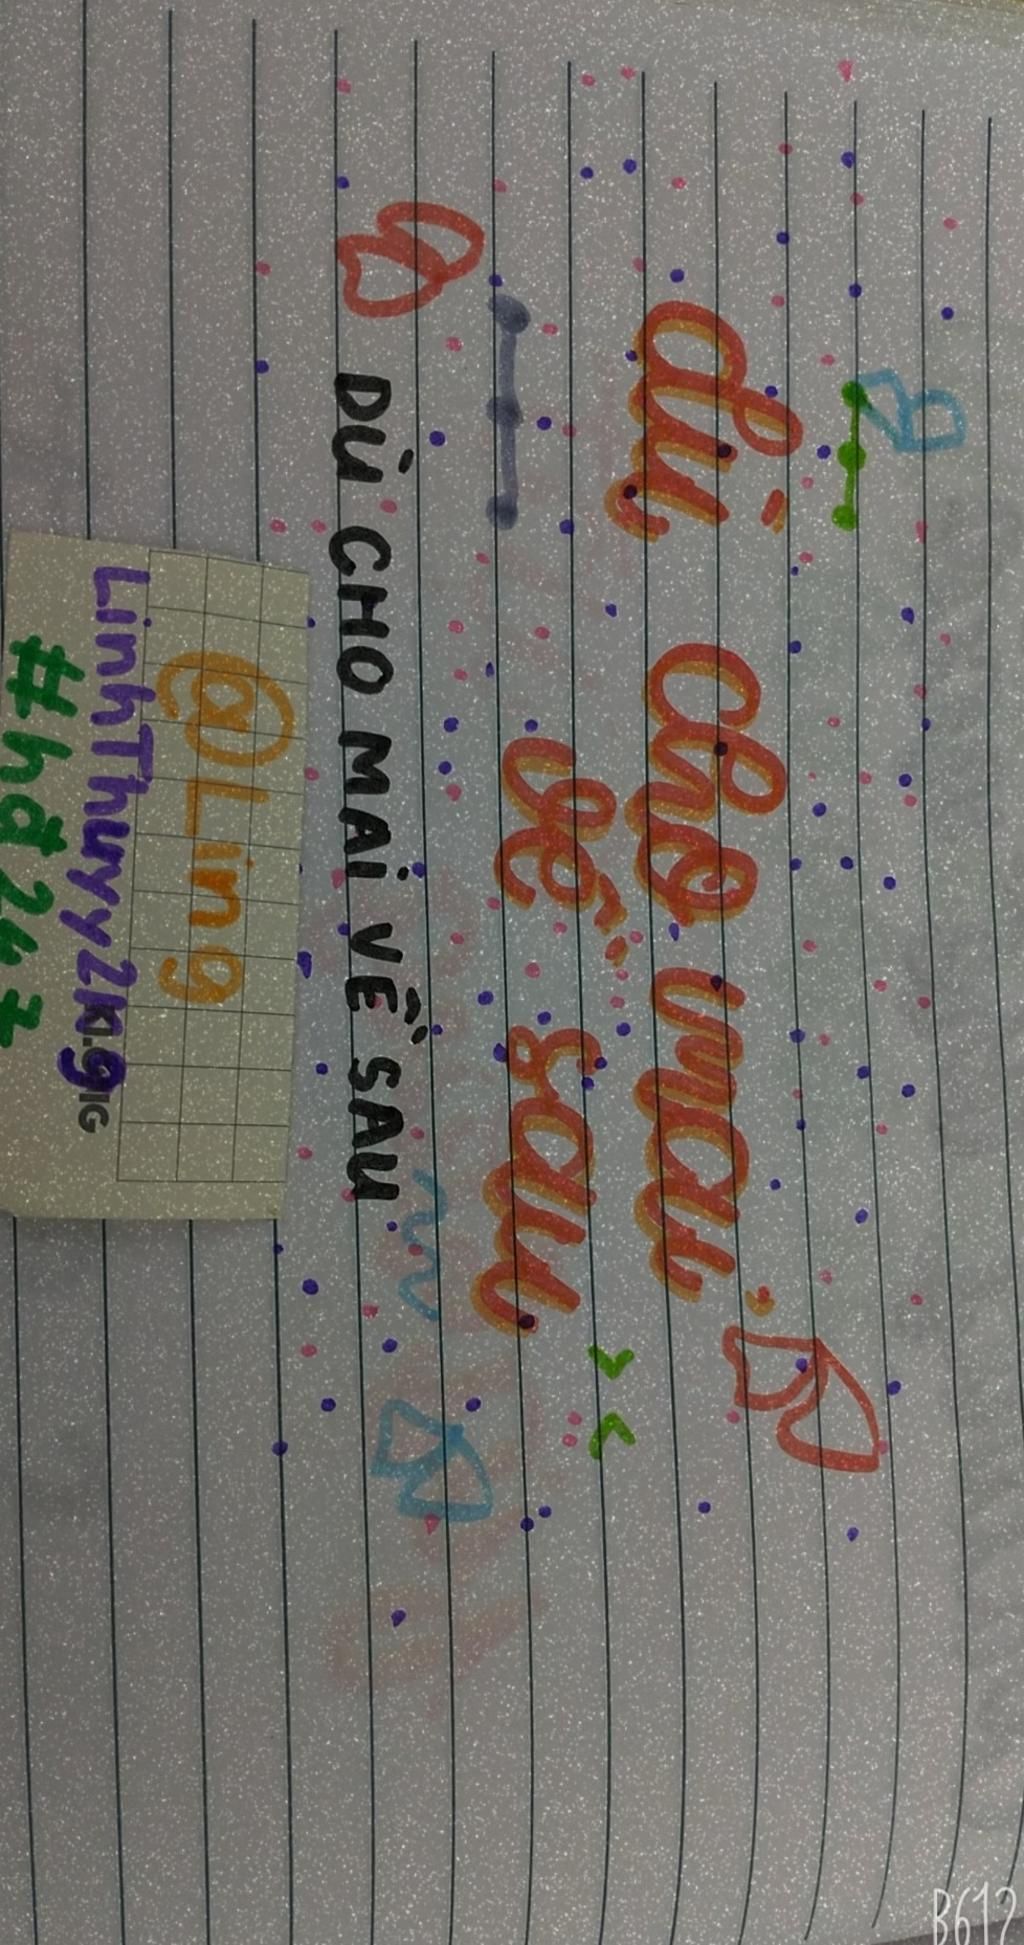 dù cho mai
về sau
DÙ CHO MAi VỀ SAU
@Ling
LinhThuyy2k1.9
#hd24+
B612